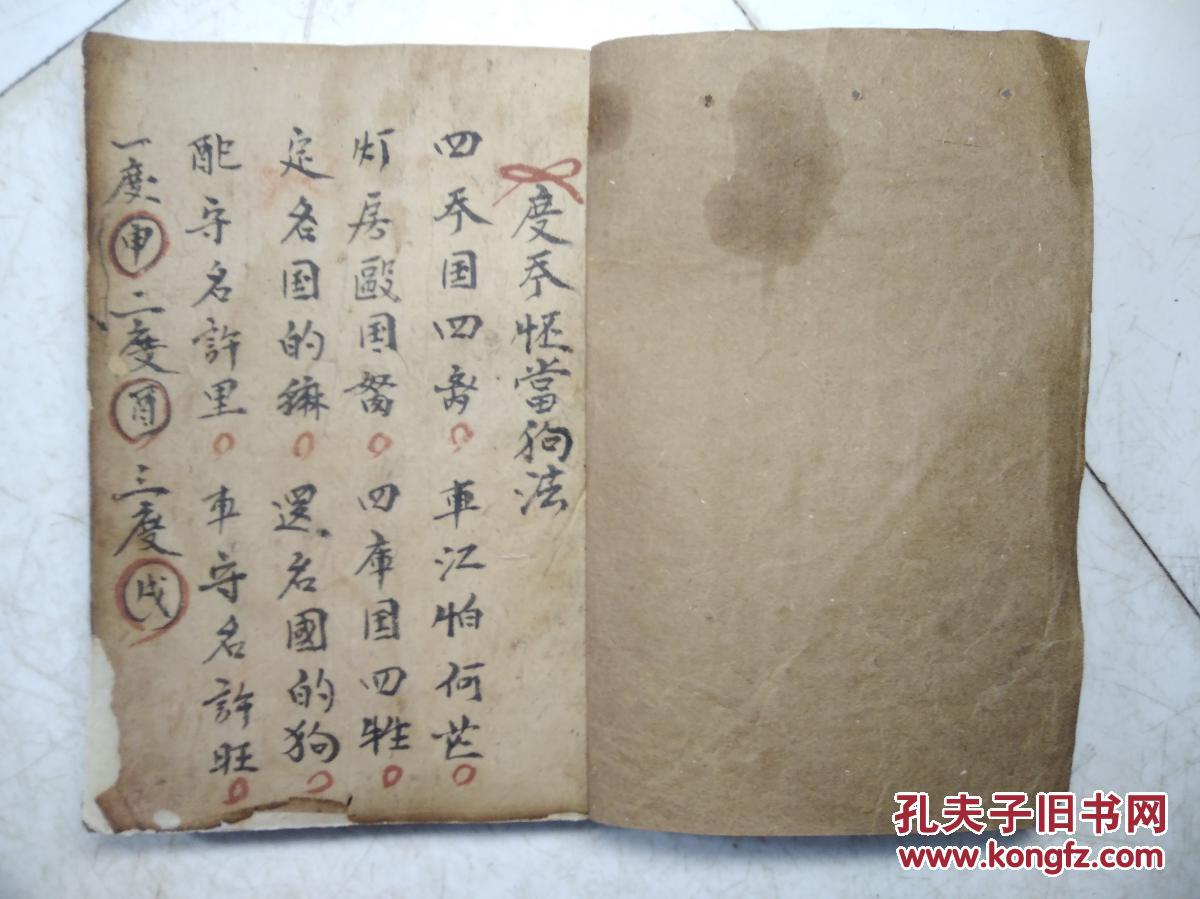 度吞怌當狗法
四吞国四𡗉 車江怕何芒
灯房毆国 四庫国四牲
定名国的 還名國的狗
配守名許里 車守名許旺
一度申二度酉三度戌
孔夫子旧书网
www.kongfz.com